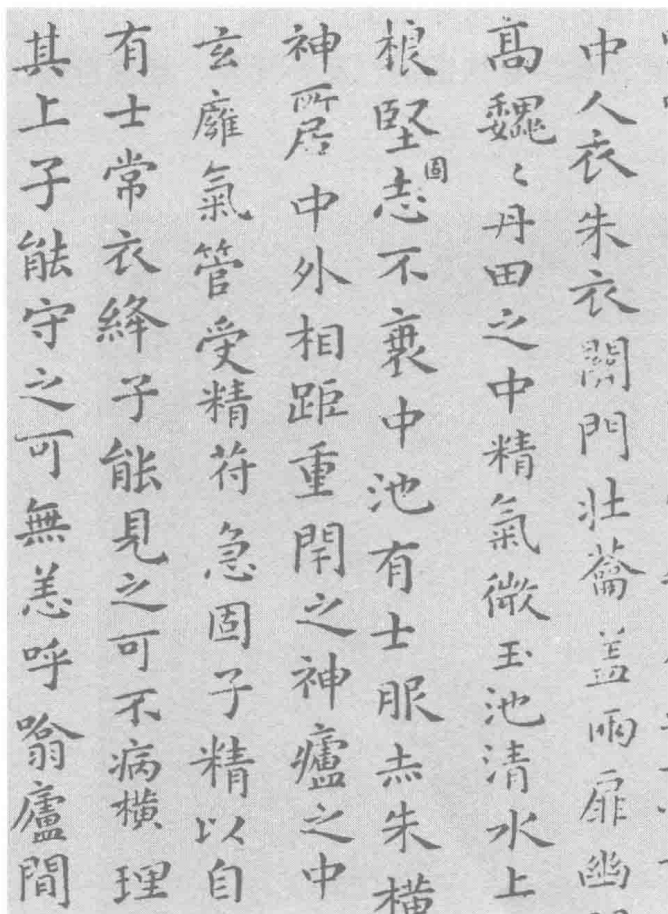 中人衣朱衣關門壯蘥盖兩扉幽
高魏〻丹田之中精氣微玉池清水上
根堅志固不衰中池有士服赤朱橫
神所居中外相距重閇之神廬之中
玄廱氣管受精苻急固子精以自
有士常衣絳子能見之可不病橫理
其上子能守之可無恙呼噏廬間